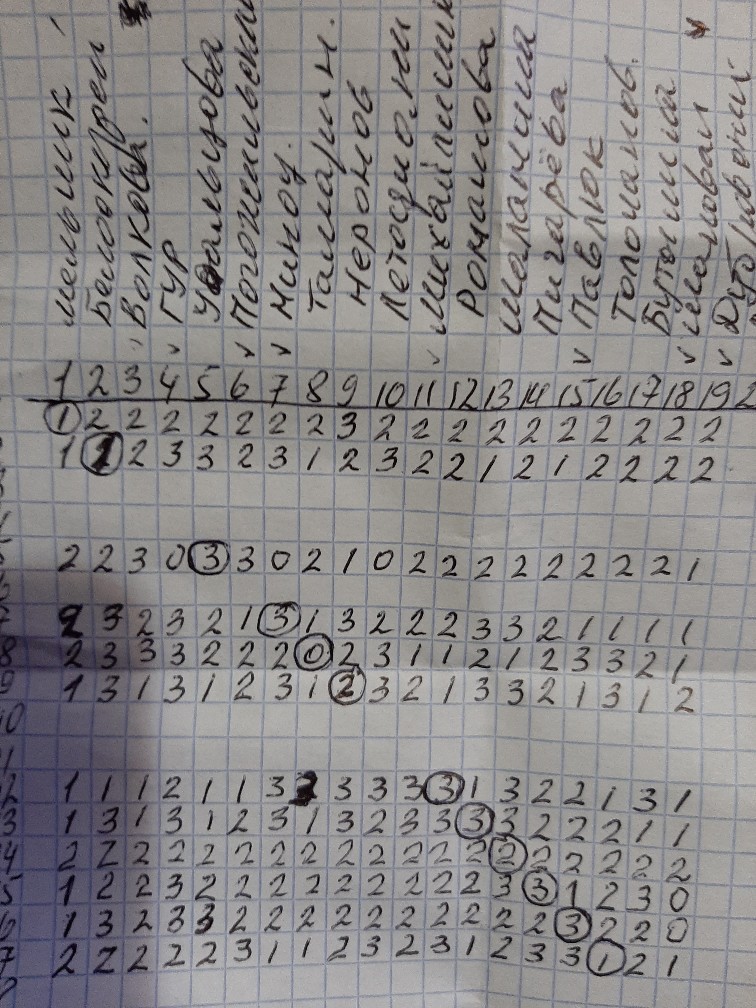 Мельник
Белокурен
Волкова.
ГУР
Погожельски
Миноу.
Тамарин.
Неронов
Романова
Маланина
Пигарёва
Павлюк
1 2 3 4 5 6 7 8 9 10 11 12 13 14 15 16 17 18 19 2
1 2 2 2 2 2 2 2 3 2 2 2 2 2 2 2 2 2 2
1 1 2 3 3 2 3 1 2 3 2 2 1 2 1 2 2 2 2
2 2 3 0 3 3 0 2 1 0 2 2 2 2 2 2 2 2 1
7 2 3 2 3 2 1 3 1 3 2 2 2 3 3 2 1 1 1 1
8 2 3 3 3 2 2 2 0 2 3 1 1 2 1 2 3 3 2 1
9 1 3 1 3 1 2 3 1 2 3 2 1 3 3 2 1 3 1 2
10
1
2 1 1 1 2 1 1 3 2 3 3 3 3 1 3 2 2 1 3 1
3 1 3 1 3 1 2 3 1 3 2 3 3 3 3 2 2 2 1 1
4 2 2 2 2 2 2 2 2 2 2 2 2 2 2 2 2 2 2 2
5 1 2 2 3 2 2 2 2 2 2 2 2 3 3 1 2 3 0
6 1 3 2 3 3 2 2 2 2 2 2 2 2 2 3 2 2 0
7 2 2 2 2 2 3 1 1 2 3 2 3 1 2 3 3 1 2 1